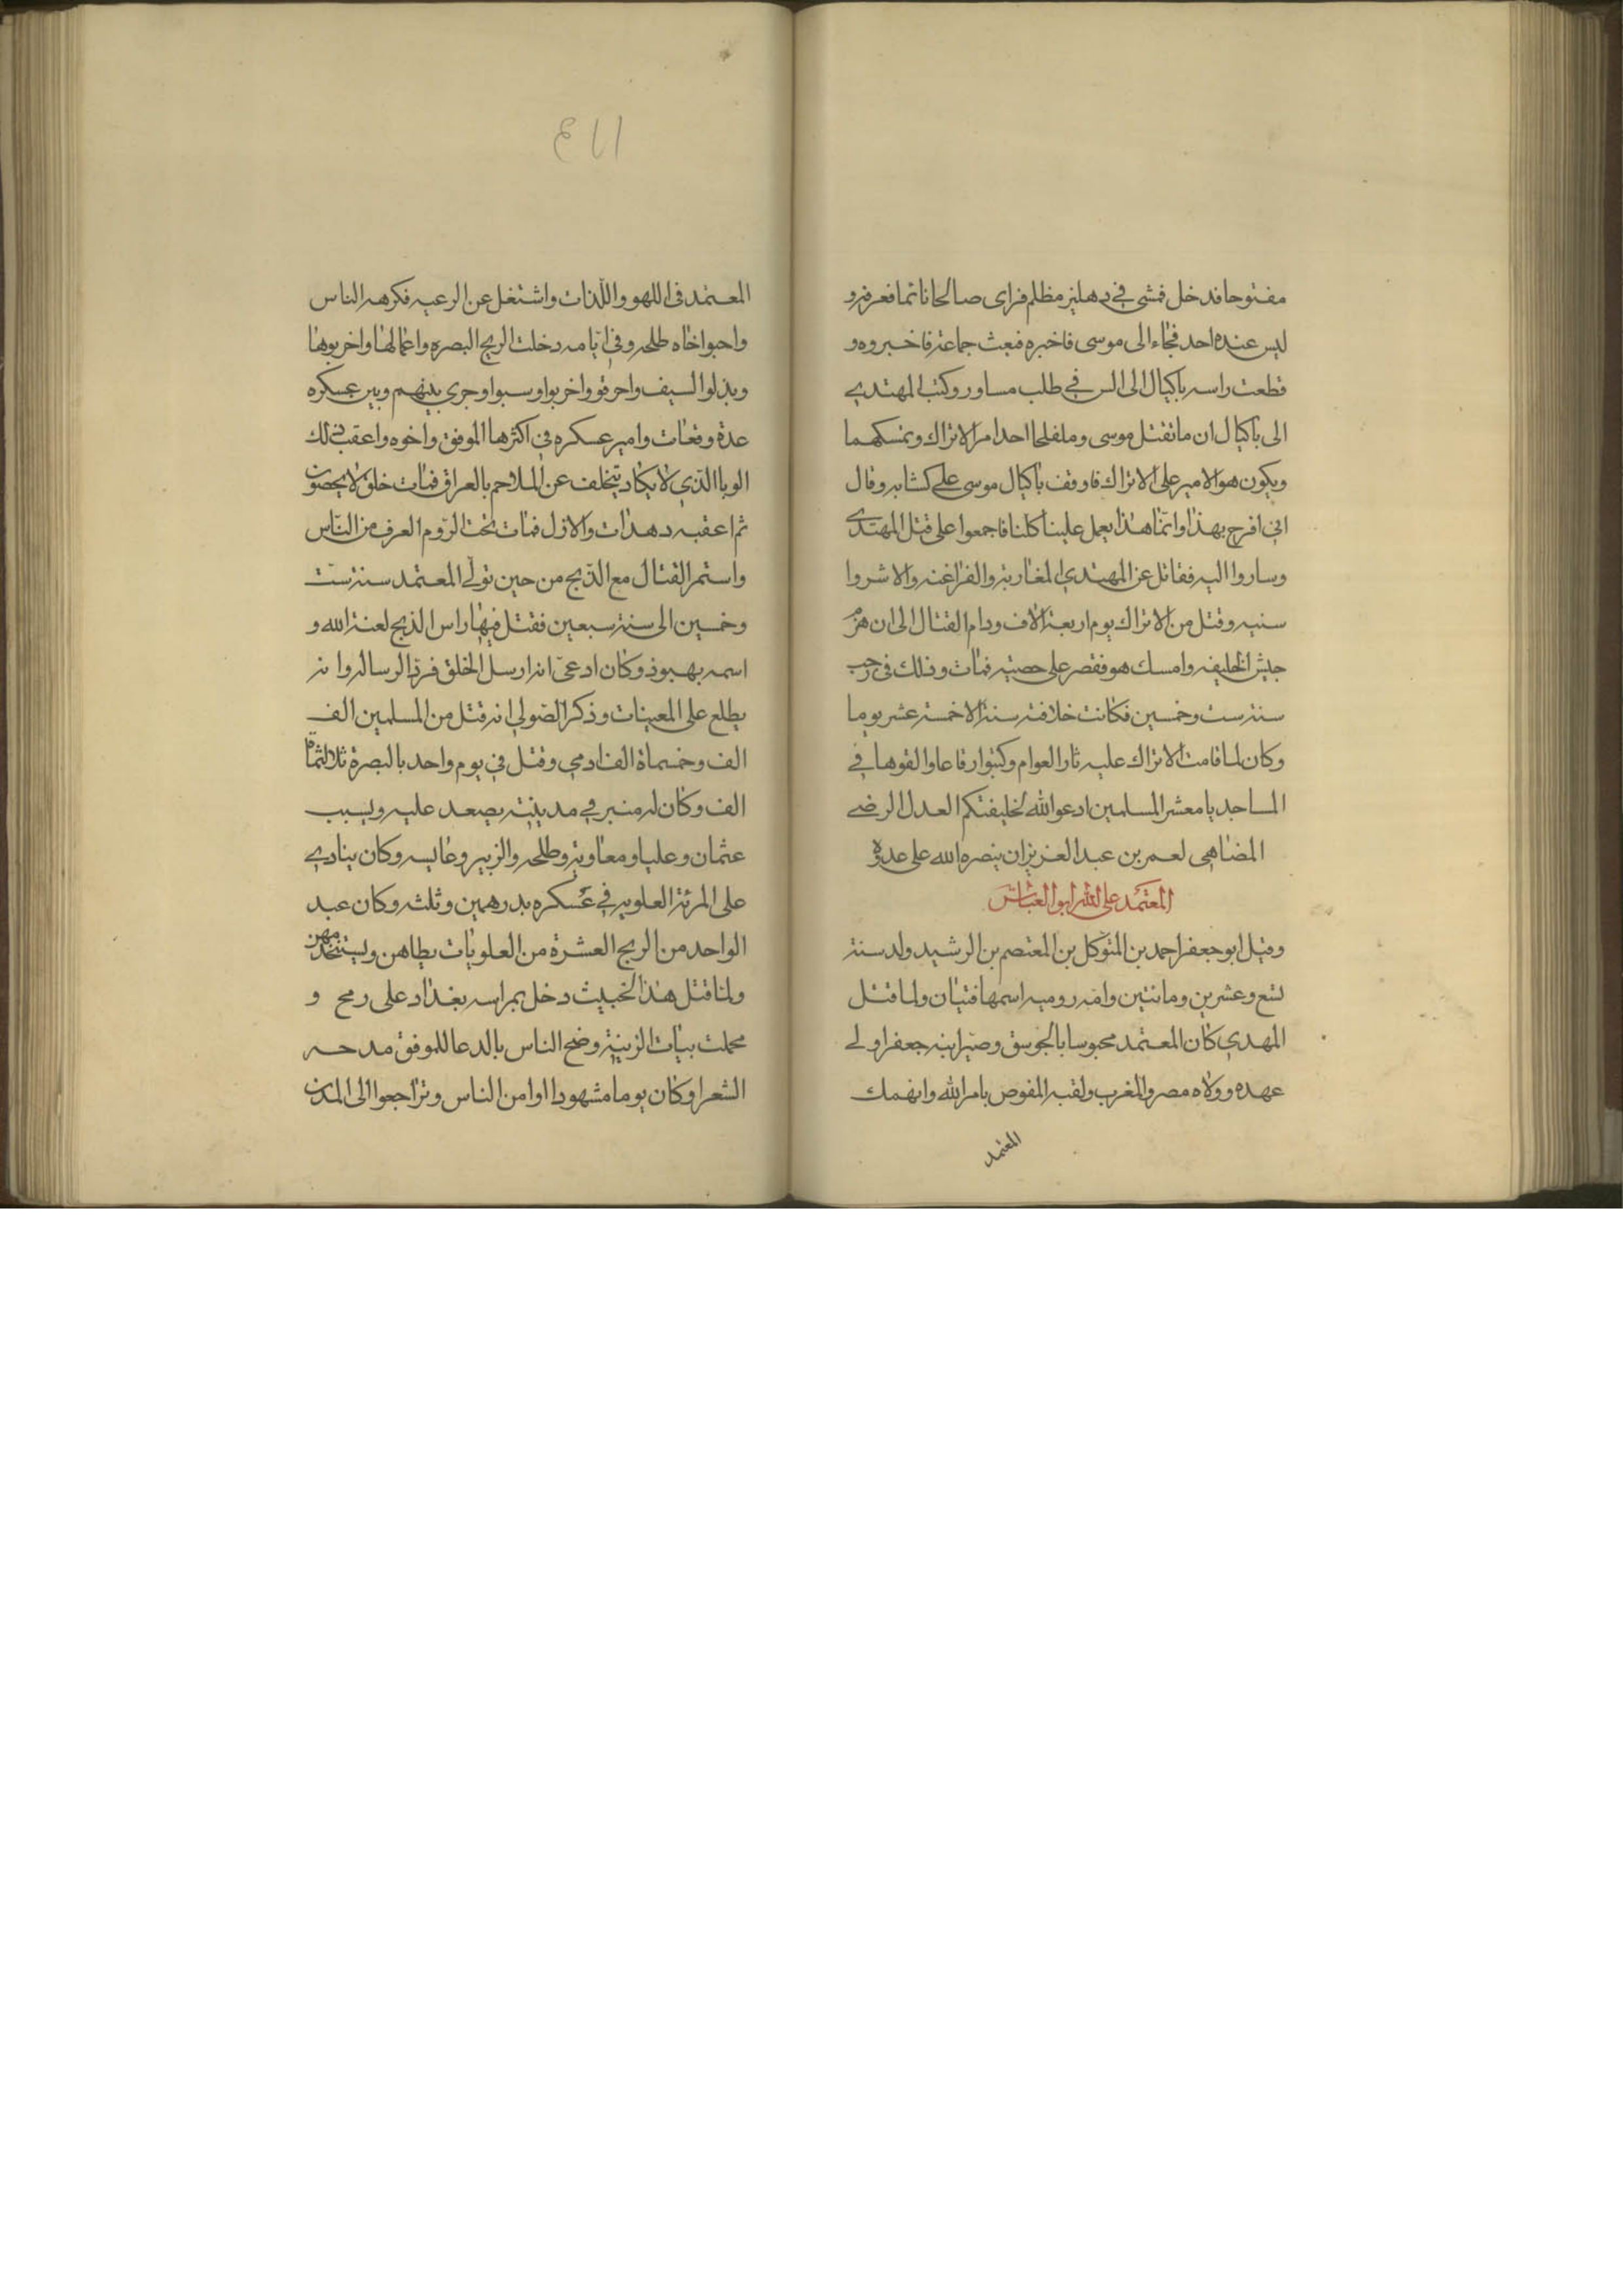 مفتوحا فدخل فمشى في دهليز مظلم فراى صالحا نائما فعرفه و
ليس عنده احد فجاء الى موسى فاخبره فبعث جماعة فاخبروه و
قطعت راسه باكيال الى السن في طلب مساور وكتب المهتدي
الى باكيال ان ما تقتل موسى وملفلحا احد امر الاتراك وتمسكهما
ويكون هو الامير على الاتراك فاوقف باكيال موسى على كتابه وقال
اني افرح بهذا وانما هذا يعمل علينا كلنا فاجمعوا على قتل المهتدى
وساروا اليه فقاتل عن المهتدي المغاربة والفراغنه والاشروا
سنيه وقتل من الاتراك يوم اربعة الاف ودام القتال الى ان هزم
جيش الخليفه وامسك هو فقصر على خصيته فمات وذلك في رجب
سنة ست وخمسين فكانت خلافته سنة الا خمسة عشر يوما
وكان لما قامت الاتراك عليه ثار العوام وكتبوا رقاعا والقوها في
المساجد يا معشر المسلمين ادعوا الله لخليفتكم العدل الرضي
المضاهي لعمر بن عبد العزيز ان ينصره الله على عدوه
المعتمد على الله ابو العباس
وقيل ابو جعفر احمد بن المتوكل بن المعتصم بن الرشيد ولد سنة
تسع وعشرين ومائتين وامه روميه اسمها فتيان ولما قتل
المهدي كان المعتمد محبوسا بالجوسق وصير ابنه جعفرا ولي
عهده وولاه مصر والمغرب ولقبه المفوض بامر الله وانهمك
المعتمد
١١٤
المعتمد في اللهو واللذات واشتغل عن الرعيه فكرهه الناس
واحبوا اخاه طلحه وفي ايامه دخلت الزنج البصره واعمالها واخربوها
وبذلوا السيف واحرقو واخربوا وسبوا وجرى بينهم وبين عسكره
عدة وقعات وامير عسكره في اكثرها الموفق واخوه واعقب ذلك
الوبا الذي لا يكاد يتخلف عن الملاحم بالعراق فمات خلق لا يحصون
ثم اعقبه دهدات والازل فمات تحت الردوم العرف من الناس
واستمر القتال مع الذبج من حين تولى المعتمد سنة ست
وخمسين الى سنة سبعين فقتل فيها راس الذبج لعنة الله و
اسمه بهبوذ وكان ادعى انه ارسل الخلق فرد الرساله وانه
يطلع على المعينات وذكر الصولي انه قتل من المسلمين الف
الف وخمسماة الف ادمي وقتل في يوم واحد بالبصرة ثلاثمائة
الف وكان له منبر في مدينته يصعد عليه ويسبب
عثمان وعليا ومعاوية وطلحه والزبير وعايسه وكان ينادي
على المرئة العلويه في عسكره بدرهمين وثلث وكان عبد
الواحد من الزنج العشرة من العلويات يطاهن ويستخدمهن
ولما قتل هذا الخبيث دخل براسه بغداد على رمح و
محملت بيات الزينة وضج الناس بالدعا للموفق مدحه
الشعرا وكان يوما مشهودا اوامن الناس وتراجعوا الى المدن